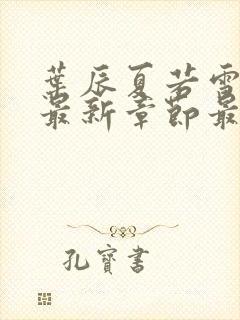 葉辰夏若雪
最新章節最
孔寶書